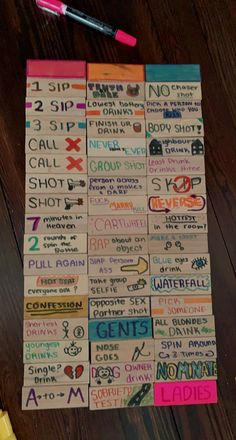 1 SIP
TRUTH
DARE
NO chaser
shot
2 SIP
Lowest battery
DRINKS
PICK A PERSON TO
3 SIP
FINISH UR
DRINK
BODY SHOT!
CALL
NEVER
EVER
neighbours
DRINK
CALL
GROUP SHOT
Least Drunk
drinks three
SHOT
person across
from u makes a
DARE
SKIP
SHOT
FUCK
MARRY
KILL
REVERSE
7 minutes in
Heaven
CARTWHEEL
HOTTEST
in the room?
2 rounds of
Spin the
Bottle
RAP about an
object
make a shot
PULL AGAIN
SLAP PERSON
Blue eyes
drink
HOT SEAT
everyone ask?
Take group
SELFIE
WATERFALL
CONFESSION
Opposite SEX
Partner shot
PICK
SOMEONE
Shortest
DRINKS
GENTS
ALL BLONDES
DRINK
youngest
DRINKS
NOSE
GOES
SPIN AROUND
3 Times
Single?
Drink
DOG OWNER
DRINKS
NOMINATE
A to M
SOBRIETY
TEST!
LADIES